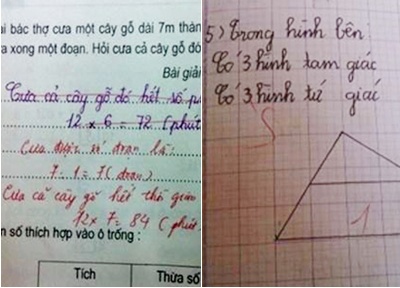 ài bác thợ cưa một cây gỗ dài 7m thàn
a xong một đoạn. Hỏi cưa cả cây gỗ đó
Bài giải
Cưa cả cây gỗ đó hết số p
12 x 6 = 72 (phút
Cưa được số đoạn là:
7 : 1 = 7 (đoạn)
Cưa cả cây gỗ hết thời gian
12 x 7 = 84 (phút)
n số thích hợp vào ô trống :
Tích
Thừa số
5) Trong hình bên:
Có 3 hình tam giác
Có 3 hình tứ giác
S
1